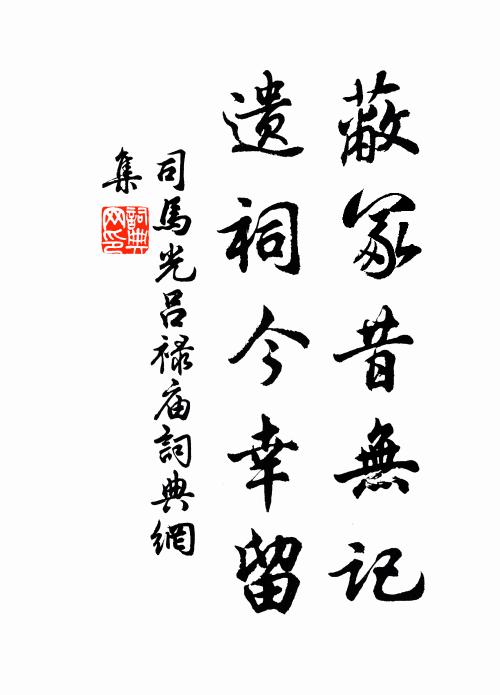 蔽冢昔無記
遺祠今幸留
司馬光吕禄庙詞典網
集
詞典
网印